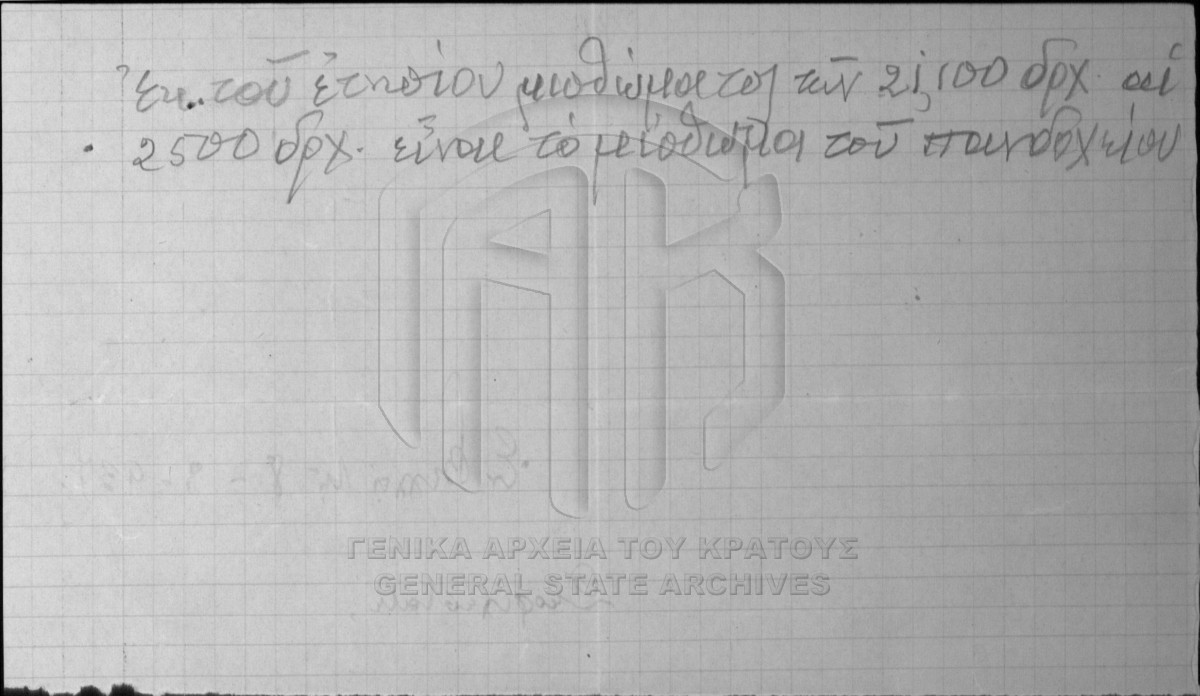 Ἐκ τοῦ ἐτησίου μισθώματος τῶν 21,100 δρχ. αἱ
2500 δρχ. εἶναι τὸ μίσθωμα τοῦ πανδοχείου
ΓΕΝΙΚΑ ΑΡΧΕΙΑ ΤΟΥ ΚΡΑΤΟΥΣ
GENERAL STATE ARCHIVES